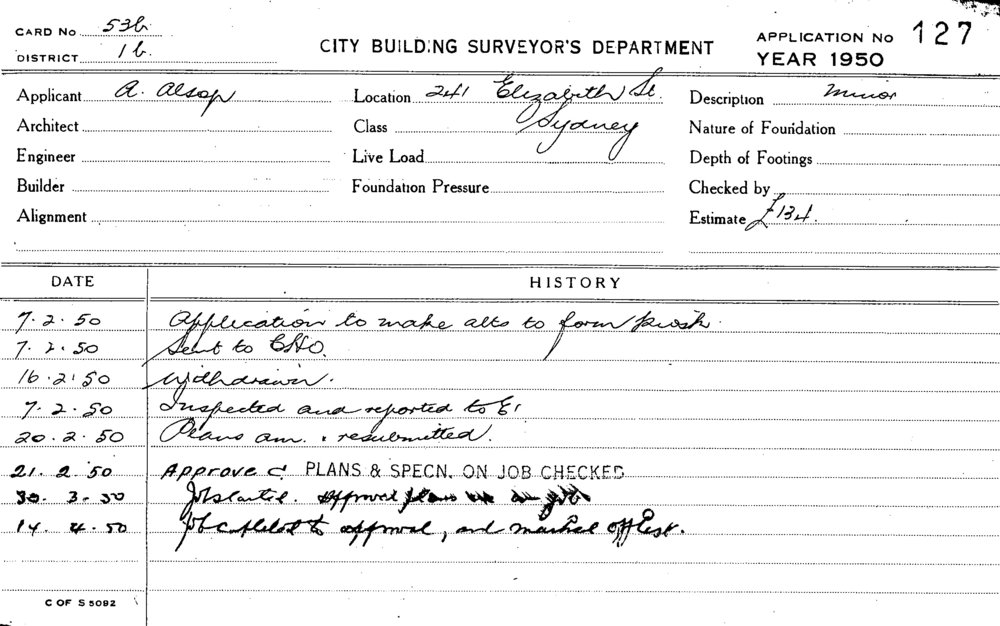 CARD No 536
CITY BUILDING SURVEYOR'S DEPARTMENT
APPLICATION No 127
DISTRICT 16.
YEAR 1950
Applicant A. Alsop
Location 241 Elizabeth St. Sydney
Description Minor
Architect
Class
Nature of Foundation
Engineer
Live Load
Depth of Footings
Builder
Foundation Pressure
Checked by
Alignment
Estimate £134.
DATE HISTORY
7.2.50 Application to make alts to form kiosk.
7.2.50 Sent to CHO.
16.2.50 Withdrawn.
7.2.50 Inspected and reported to
20.2.50 Plans am. & resubmitted.
21.2.50 Approved PLANS & SPECN. ON JOB CHECKED
30.3.50 Job started. Approval plans on job
14.4.50 Job completed to approval, and marked off list.
C OF S 5092